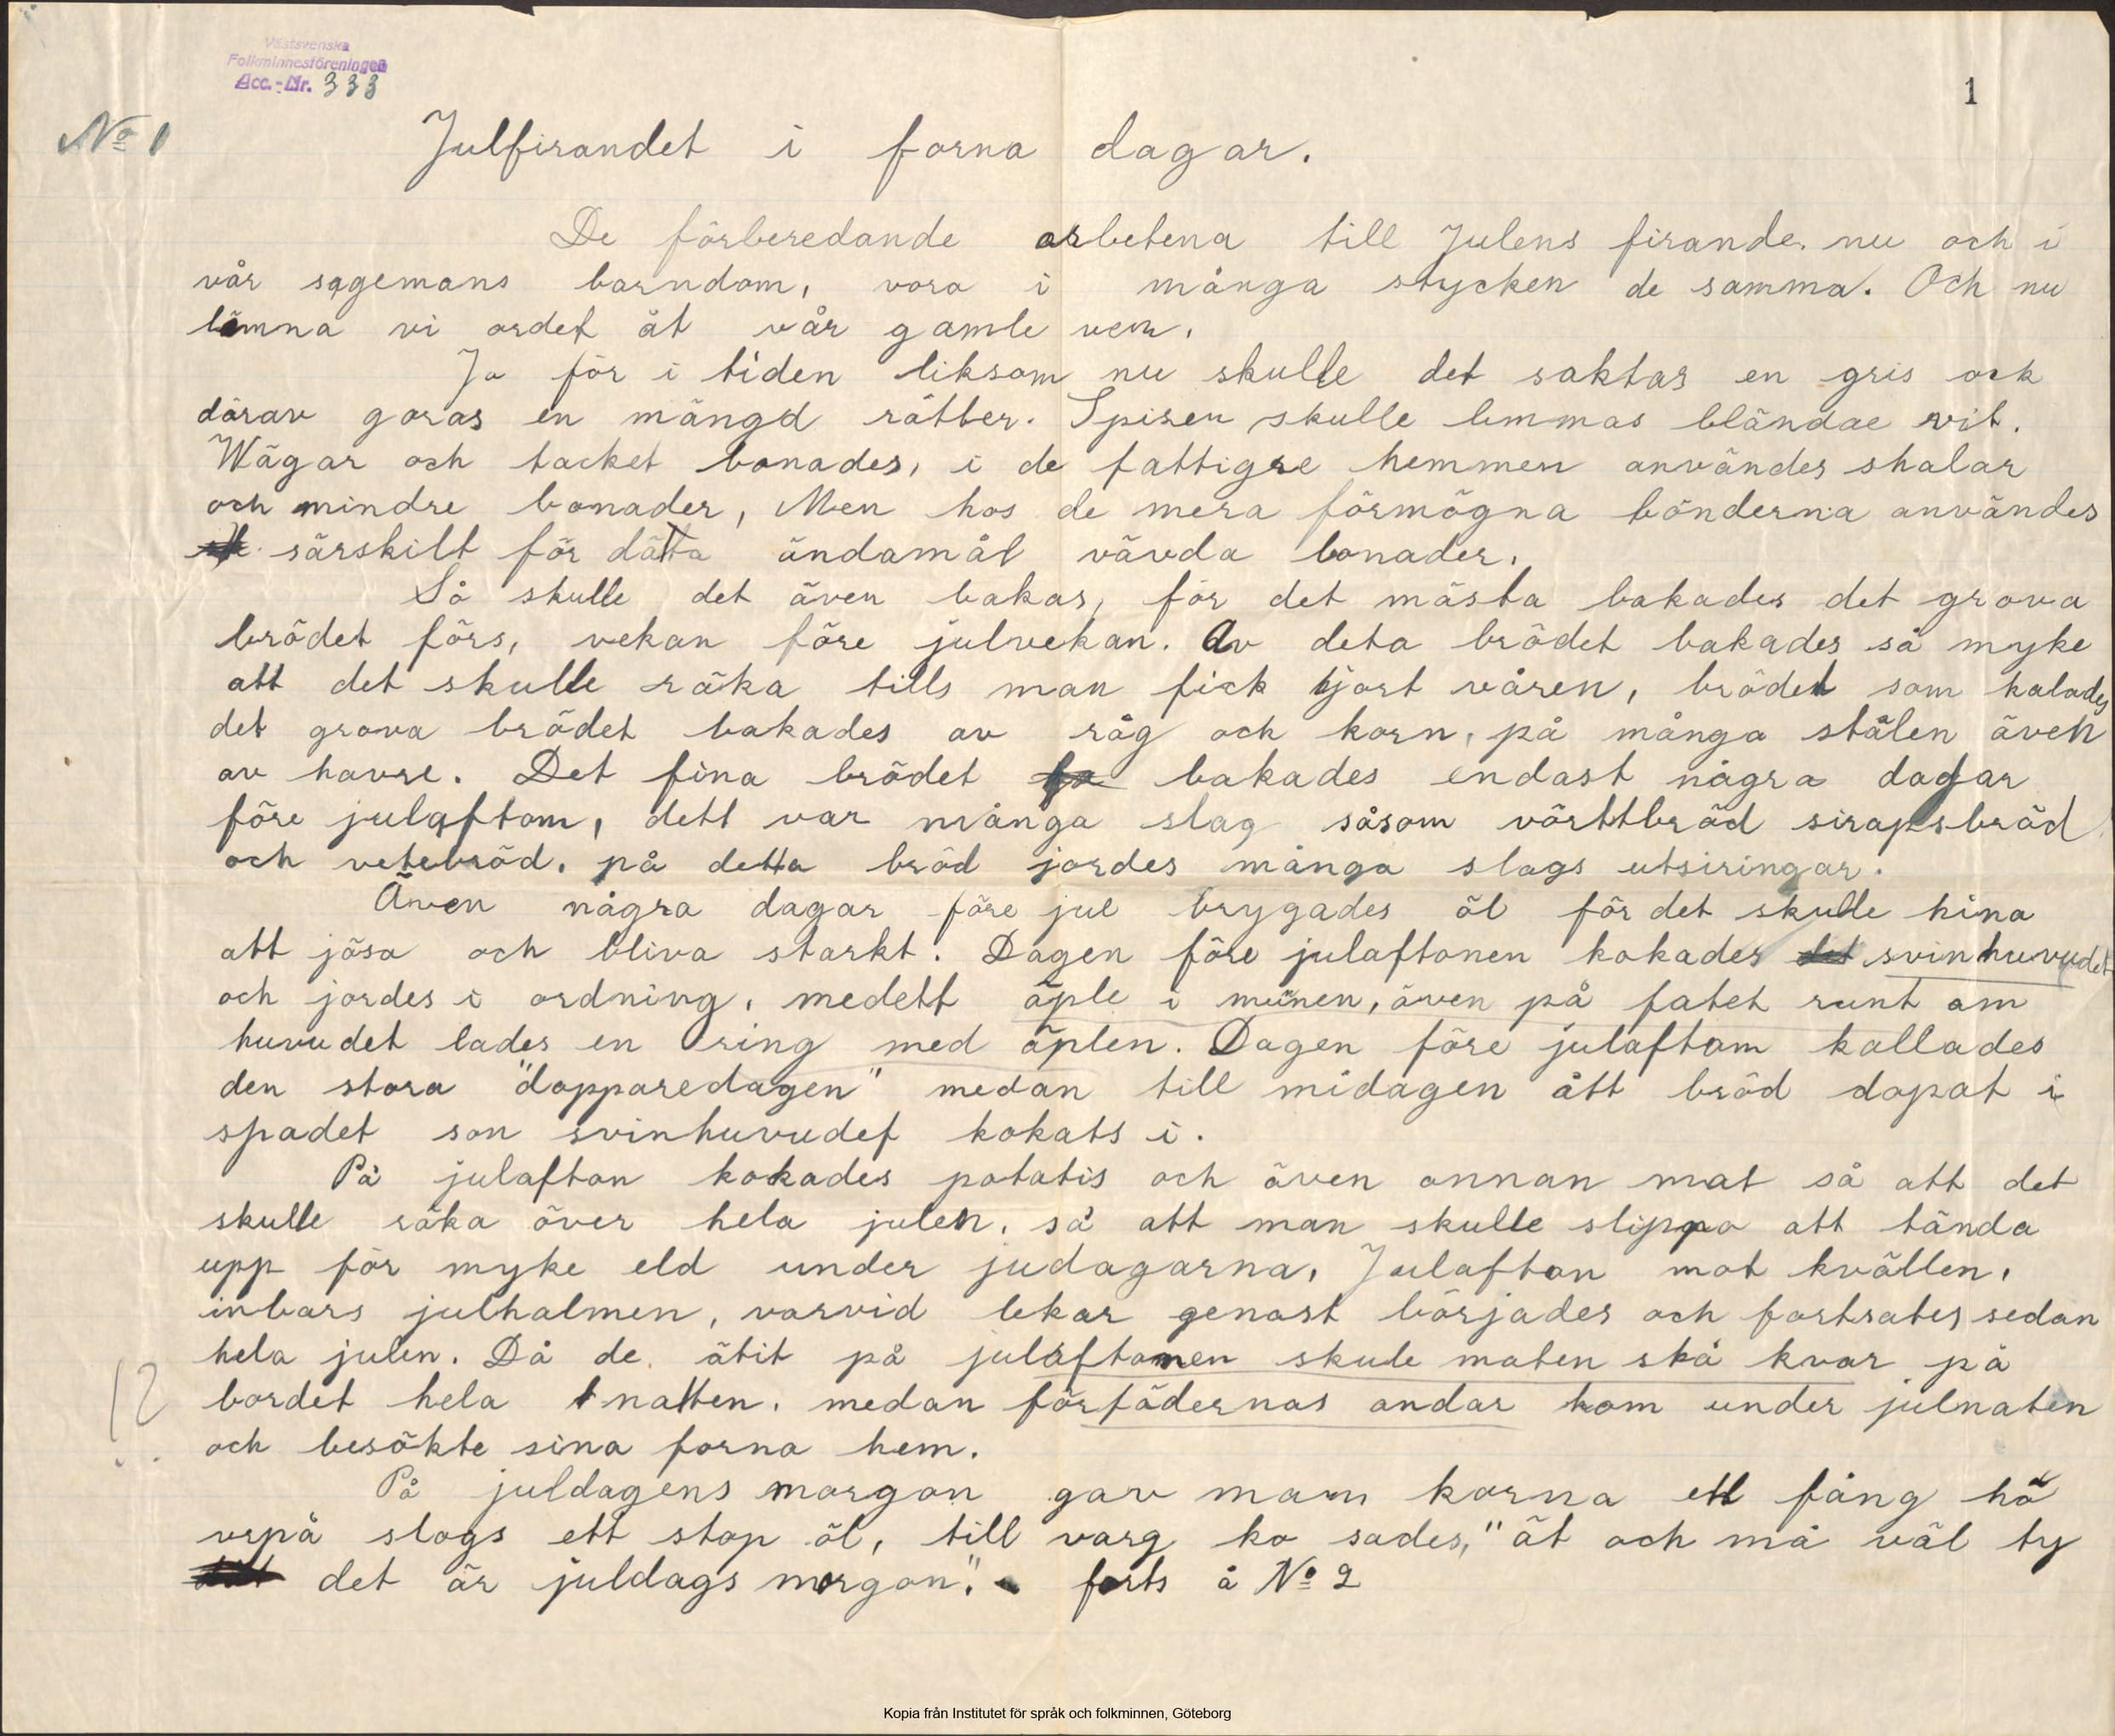 Västsvenska
Folkminnesföreningen
Acc.-Nr. 333
1
No 1
Julfirandet i forna dagar.
De förberedande arbetena till Julens firande. nu och i
vår sagemans barndom, voro i många stycken de samma. Och nu
lämna vi ordet åt vår gamle ven.
Ja för i tiden liksom nu skulle det saktas en gris ock
därav göras en mängd rätter. Spisen skulle limmas bländae vit.
Wägar och tacket bonades, i de fattigre hemmen användes shalar
och mindre bonader, Men hos de mera förmögna bönderna användes
särskilt för dätta ändamål vävda bonader.
Så skulle det även bakas, för det mästa bakades det grova
brödet förs, vekan före julvekan. Av deta brödet bakades så myke
att det skulle räka tills man fick tjort våren, brödet som kalades
det grova brödet bakades av råg och korn, på många stälen även
av havre. Det fina brödet bakades endast några dagar
före julaftom, dett var många slag såsom vörttbröd sirapsbröd
och vetebröd. på detta bröd jordes många slags utsiringar.
Även några dagar före jul brygades öl för det skulle hina
att jösa och bliva starkt. Dagen före julaftonen kokades svinhuvudet
och jordes i ordning, medett äple i munen, även på fatet runt om
huvudet lades en ring med äplen. Dagen före julaftom kallades
den stora "dopparedagen" medan till midagen ått bröd dopat i
spadet son svinhuvudet kokats i.
På julafton kokades potatis och även annan mat så att det
skulle räka över hela julen, så att man skulle slippa att tända
upp för myke eld under judagarna, Julafton mot kvällen,
inbars julhalmen, varvid lekar genast börjades och fortsates sedan
hela julen. Då de ätit på julaftonen skule maten stå kvar på
bordet hela natten. medan förfädernas andar kom under julnaten
och besökte sina forna hem.
!?
På juldagens morgon gav mam korna ett fång hö
vrpå slogs ett stop öl, till varg ko sades, "ät och må väl ty
det är juldags morgon". forts å No 2
Kopia från Institutet för språk och folkminnen, Göteborg